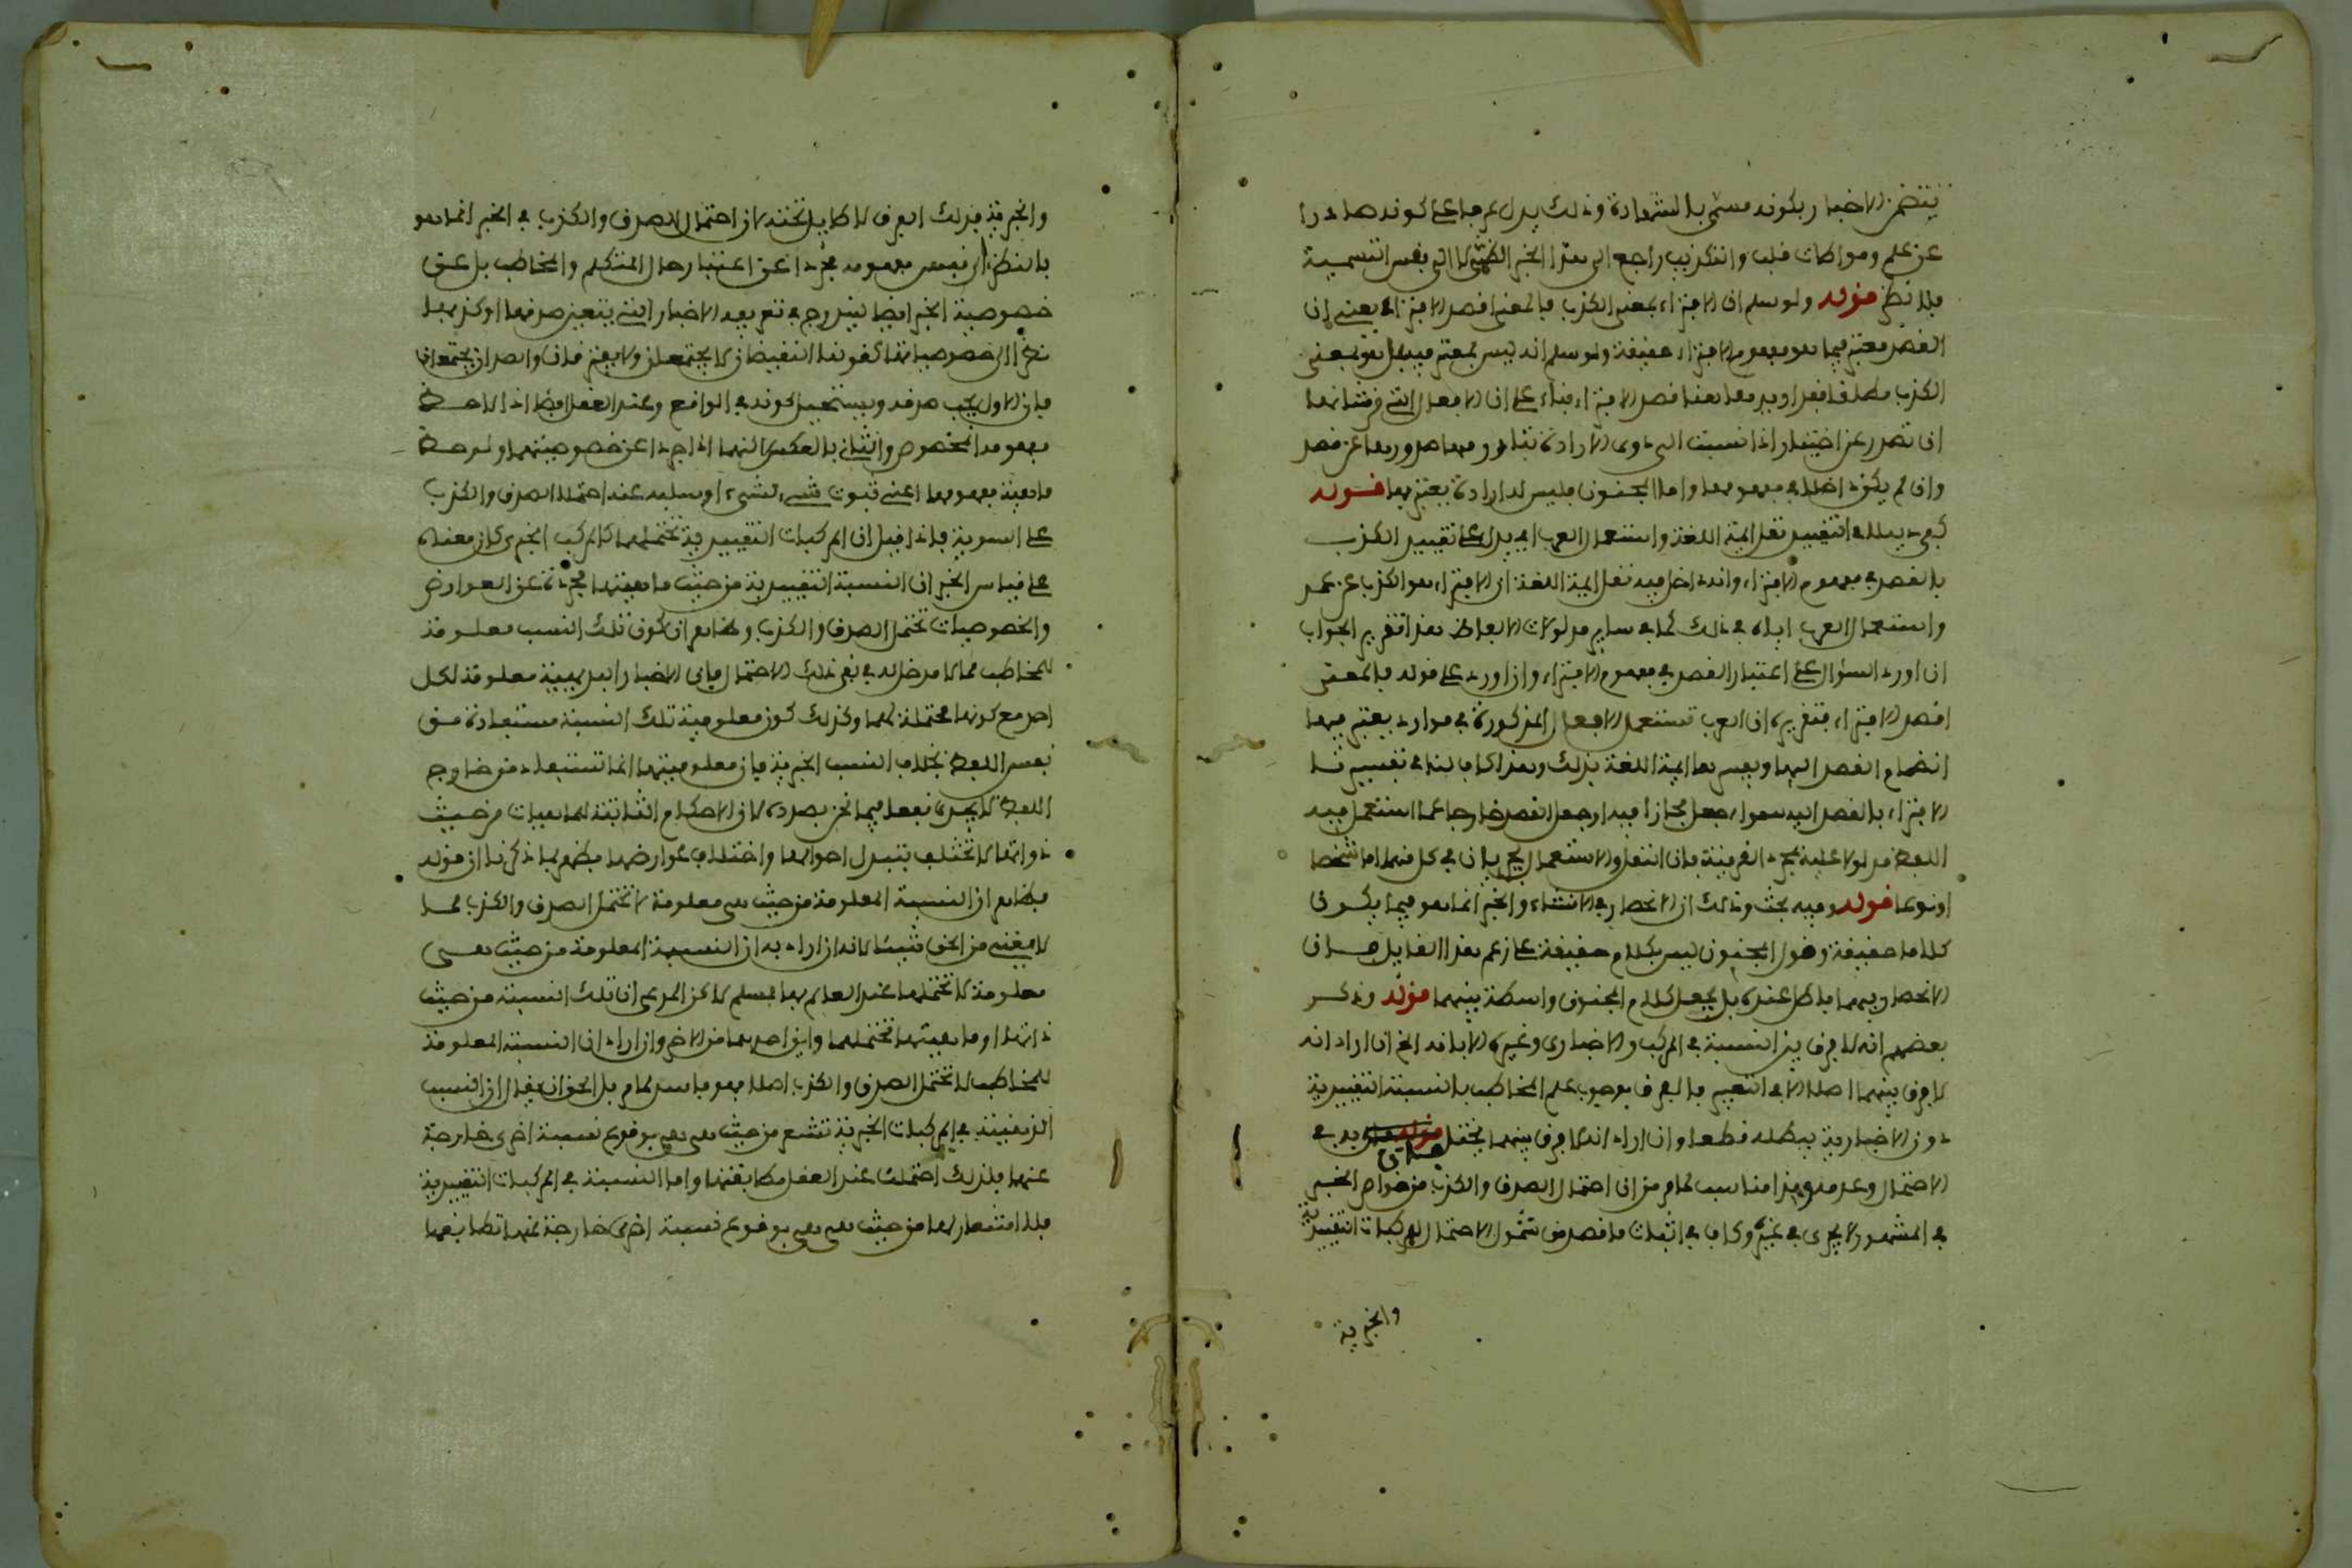 يتضمن الاخبار بكونه مسمى بالشهادة وذلك يدل عرفا على كونه صادرا
عن علم ومواطات قلب والتكذيب راجع الى هذا الخبر الضمنى لا الى نفس التسمية
فلا نظر قوله ولو سلم ان الافتراء بمعنى الكذب فالمعنى اقصد الافتراء يعنى ان
القصد معتبر فيما هو مفهوم الافتراء حقيقة ولو سلم انه ليس بمعتبر فيه بل هو بمعنى
الكذب مطلقا فقد اريد هاهنا قصد الافتراء بناء على ان الافعال التى من شانها
ان تصدر عن اختيار اذا نسبت الى ذوى الارادة تبادر منها صدورها عن قصد
وان لم يكن داخلا فى مفهومها واما المجنون فليس له ارادة يعتد بها قوله
كفى دليلا فى التقييد نقل ايمة اللغة واستعمال العرب اى يدل على تقييد الكذب
بالقصد فى مفهوم الافتراء وانه داخل فيه نقل ايمة اللغة ان الافتراء هو الكذب عن عمد
واستعمال العرب اياه فى ذلك كما فى ساير مدلولات الالفاظ هذا تقرير الجواب
ان اورد السؤال على اعتبار القصد فى مفهوم الافتراء وان اورد على قوله فالمعنى
اقصد الافتراء فتقريره ان العرب تستعمل الافعال المذكورة فى موارد يعتبر فيها
انضمام القصد اليها ويفسرها ايمة اللغة بذلك وهذا كاف لنا فى تفسيرنا
الافتراء بالقصد اليه سواء جعل مجازا فيه او جعل القصد خارجا عما استعمل فيه
اللفظ مدلولا عليه بمجرد القرينة فان النقل والاستعمال يجريان فى كل منهما اما شخصا
او نوعا قوله وفيه بحث وذلك ان الانحصار فى الانشاء والخبر انما هو فيما يكون
كلاما حقيقة وقول المجنون ليس بكلام حقيقة على زعم هذا القايل فان
الانحصار فيهما باطل عنده بل يجعل كلام المجنون واسطة بينهما قوله وذكر
بعضهم انه لا فرق بين النسبة فى المركب والاخبارى وغيره الا بانه الخ ان اراد انه
لا فرق بينهما اصلا الا فى التعبير فالفرق بوجوب علم المخاطب بالنسبة التقييدية
دون الاخبارية يبطله قطعا وان اراد انه لا فرق بينهما يختلف به فى
الاحتمال وعدمه
فى المشهور لا يجرى فى غيره وكاف فى اثبات ما قصد من شمول الاحتمال للمركبات التقييدية
والخبرية
والخبرية فذلك الفرق لا طايل تحته لان احتمال الصدق والكذب فى الخبر انما هو
بالنظر الى نفس مفهومه مجردا عن اعتبار حال المتكلم والمخاطب بل عن
خصوصية الخبر ايضا ليندرج فى تعريفه الاخبار التى يتعين صدقها او كذبها
نظرا الى خصوصياتها كقولنا النقيضان لا يجتمعان ولا يرتفعان والضدان يجتمعان
فان الاول يجب صدقه ويستحيل كذبه فى الواقع وعند العقل ايضا اذا لاحظ
مفهومه المخصوص والثانى بالعكس لكنهما اذا جردا عن خصوصيتهما ولوحظ
ماهية مفهومهما اعنى ثبوت شىء لشىء او سلبه عنه احتملا الصدق والكذب
على السوية فاذا قيل ان المركبات التقييدية تحتملهما كالمركب الخبرى كان معناه
على قياس الخبر ان النسبة التقييدية من حيث ماهيتها مجردة عن العوارض
والخصوصيات تحتمل الصدق والكذب وظاهر ان كون تلك النسب معلومة
للمخاطب مما لا مدخل له فى نفى ذلك الاحتمال فان الاخبار البديهية معلومة لكل
احد مع كونها محتملة لهما وكذلك كون معلومية تلك النسبة مستفادة من
نفس اللفظ بخلاف النسب الخبرية فان معلوميتها انما تستفاد من خارج
اللفظ لا يجدى نفعا فيما نحن بصدده لان الاحكام الثابتة للماهيات من حيث
ذواتها لا تختلف بتبدل احوالها واختلاف عوارضها فظهر بما ذكرنا ان قوله
فظاهر ان النسبة المعلومة من حيث هى معلومة لا تحتمل الصدق والكذب مما
لا يغنى من الحق شيئا لانه ان اراد به ان النسبة المعلومة من حيث هى
معلومة لا تحتملهما عند العالم بها فمسلم لاكن المدعى ان تلك النسبة من حيث
ذاتها او ماهيتها تحتملهما واين احدهما من الاخر وان اراد ان النسبة المعلومة
للمخاطب لا تحتمل الصدق والكذب اصلا فهو فاسد لما مر بل الحق ان يقال ان النسب
الذهنية فى المركبات الخبرية تشعر من حيث هى هى بوقوع نسبة اخرى خارجة
عنها فلذلك احتملت عند العقل مطابقتها واما النسبة فى المركبات التقييدية
فلا اشعار لها من حيث هى هى بوقوع نسبة اخرى خارجة عنها تطابقها